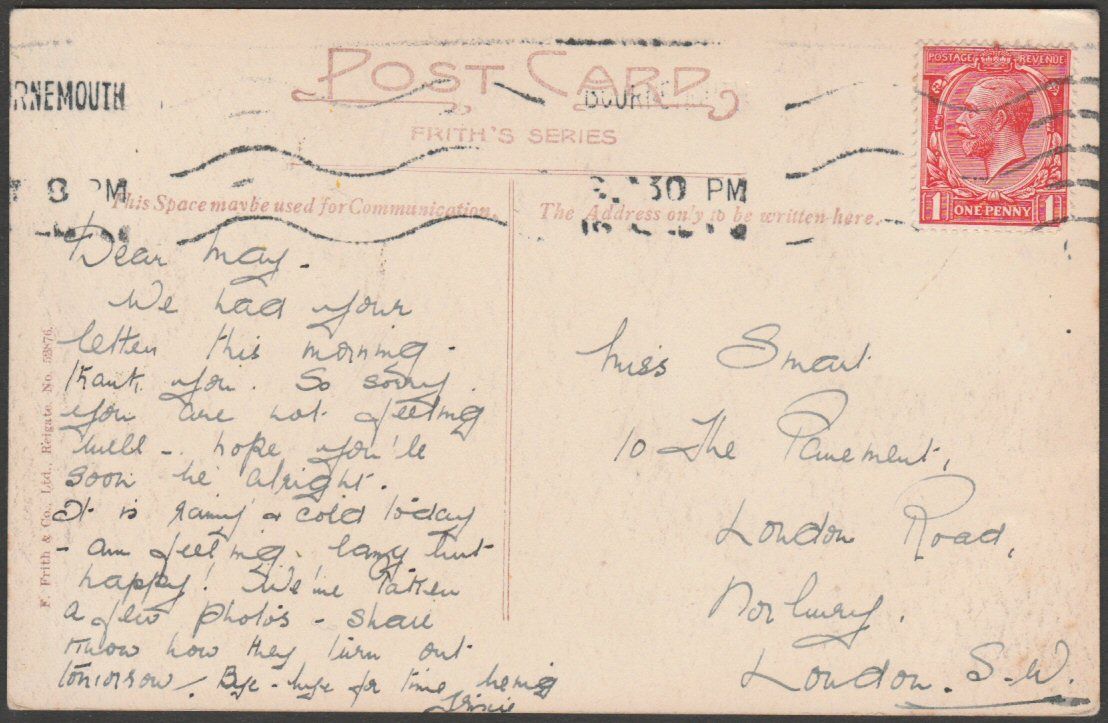 POST CARD
FRITH'S SERIES
RNEMOUTH
8 PM
30 PM
POSTAGE REVENUE
1 ONE PENNY 1
This Space may be used for Communication.
The Address only to be written here.
F. Frith & Co., Ltd., Reigate. No. 52876.
Dear May.
We had your
letter this morning -
thank you. So sorry
you are not feeling
well - hope you'le
soon be alright.
It is rainy & cold today
- am feeling lazy but
happy! We've taken
a few photos - shall
know how they turn out
tomorrow. Bye-bye for time being
Miss Smart
10 The Pavement,
London Road,
Norbury.
London. S.W.